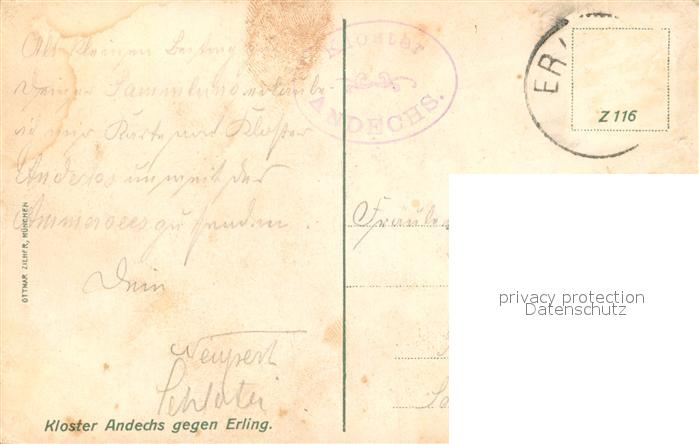 Als kleinen Beitrag
Deiner Sammlung erlaube
ich mir Karte aus Kloster
Andechs unweit des
Ammersees zu senden.
Dein
Kloster
ANDECHS.
ER
Z 116
Fräulein
OTTMAR ZIEHER, MÜNCHEN
Kloster Andechs gegen Erling.
privacy protection
Datenschutz